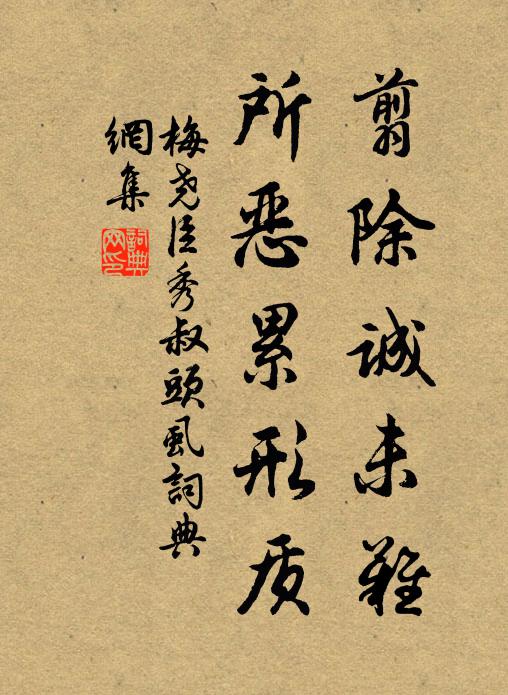 翦除诚未难
所恶累形质
梅尧臣秀叔头虱词典
网集
词典网印